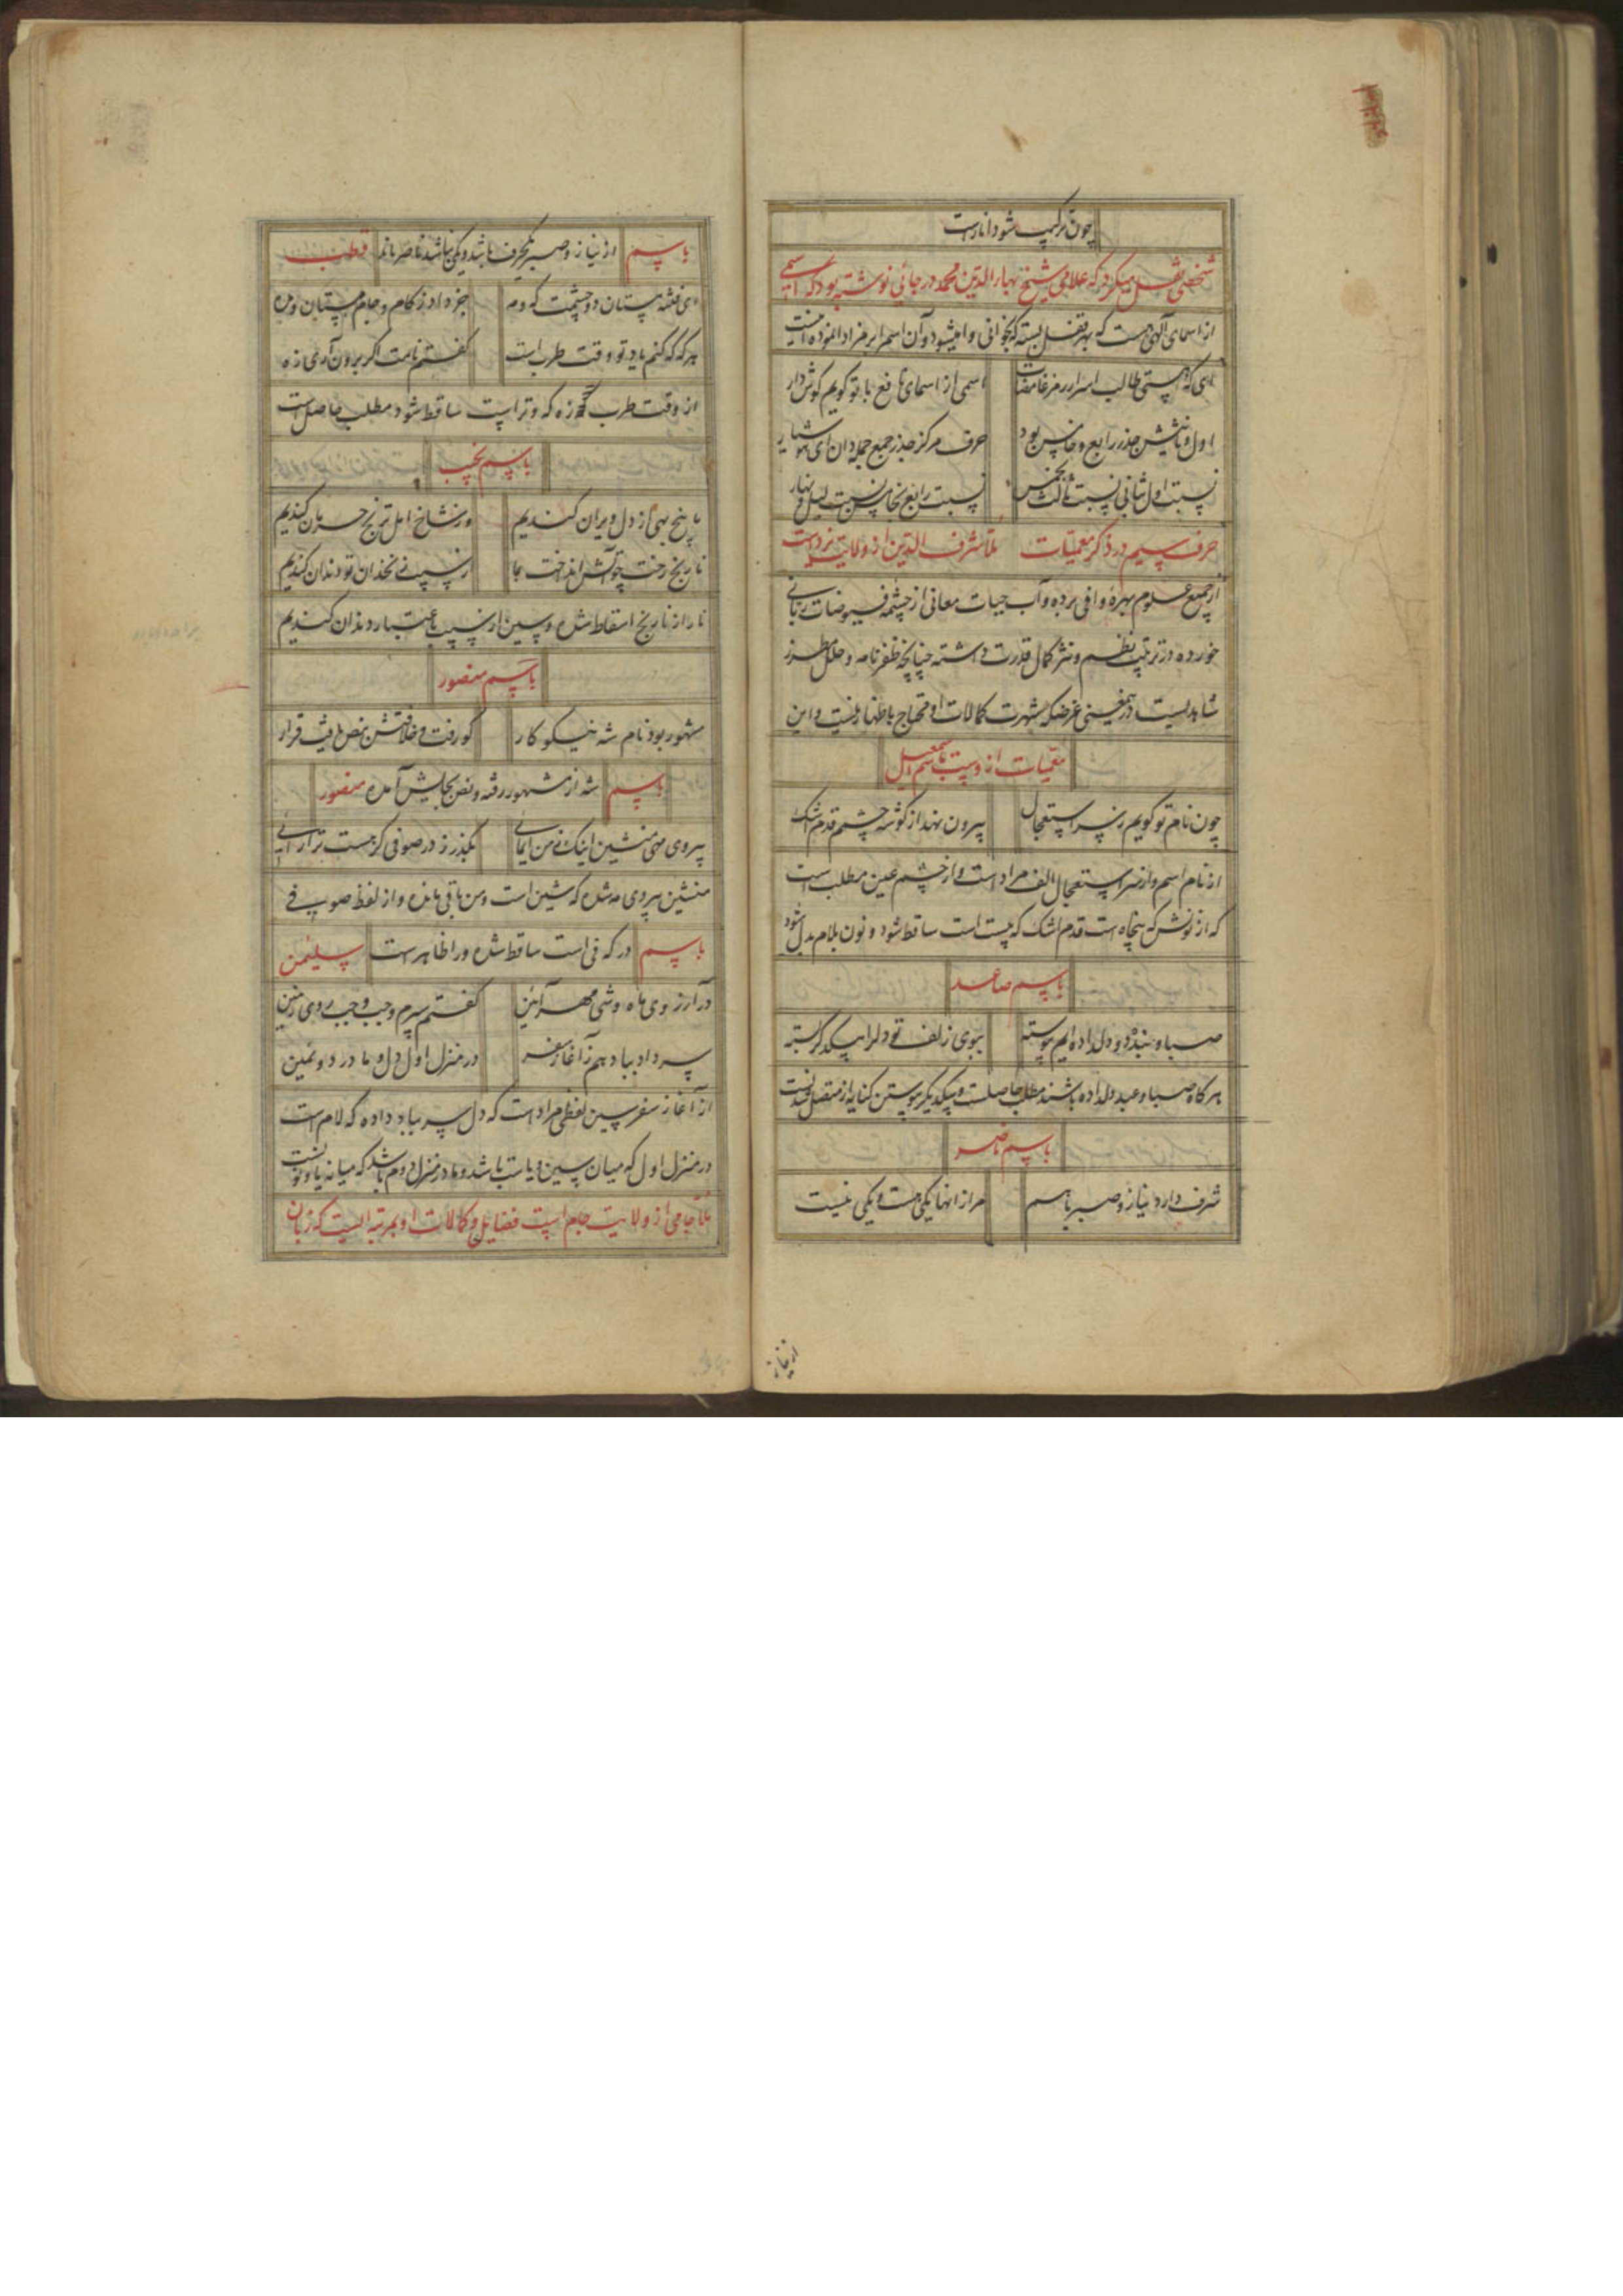 چون مرکب شود انار است
شخصی نقل میکرد که علامی شیخ بهاء الدین محمد در جائی نوشته بود که اسمی
از اسمای الهی هست که بهر قفل بسته که بخوانی وا میشود و آن اسم را برمز ادا نموده اینست
ای که هستی طالب اسرار رمز غامضات اسمی از اسمای نافع با تو گویم گوش دار
اول و ثانیش جذر رابع و خامس بود حرف مرکز جذر جمیع جمله دان ای هوشیار
نسبت اول بثانی نسبت ثالث بخمس نسبت رابع بخامس نسبت لیل و نهار
حرف سیم در ذکر معمیات ملا شرف الدین از ولایت یزد است
از جمیع علوم بهرهٔ وافی برده و آب حیات معانی از چشمه فیوضات ربانی
خورده در ترتیب نظم و نثر کمال قدرت داشته چنانچه ظفرنامه و حلل مطرز
شاهدیست در معنی غرضکه شهرت کمالات او محتاج باظهار نیست و این
معمیات از وست باسم اسمعیل
چون نام تو گویم ز سر استعجال بیرون نهد از گوشه چشم قدم اشک
از نام اسم و از سر استعجال الف مراد است و از چشم عین مطلب است
که از نونش که پنجاه است قدم اشک که چست است ساقط شود و نون بلام بدل شود
باسم صاعد
صبا و عبد دو دلداده ایم پیوسته ببوی زلف تو دل را بیکدگر بسته
هر گاه صبا و عبد دلداده باشند مطلب حاصلست و بیکدیگر پیوستن کنایه از متصل شدنست
باسم ناصر
شرف دارد نیاز و صبر باهم مر از انها یکی هست و یکی نیست
از نیاز
باسم از نیاز و صبر یکحرف باشد و یکی نباشد ناصر ماند قطب
ای فتنه مستان دو چشمت که و مه جز ه ادز کام و جام مستان و مده
هر که که کنم یاد تو وقت طرب است گفتم نامت اگر برون آری زه
از وقت طرب زه که وتر است ساقط شود مطلب حاصل است
باسم نجیب
ما بیخ بهی از دل ویران کندیم وز شاخ امل ترنج حرمان کندیم
نارنج رخت چو آتش انداخت بما ز سیب زنخدان تو دندان کندیم
نار از نارنج اسقاط شده و سین از سیب باعتبار دندان کندیم
باسم منصور
مشهور بود نام شه نیکو کار کو رفت و خلافتش بنص یافت قرار
باسم شه از مشهور رفته و نص بجایش آمده منصور
پیروی منشین اینک ز من ایمائی بگذر ز در صوفی گر هست ترا رائی
منشین بیروی مه شده که شین است و من باقی مانده و از لفظ صوفی
باسم در که فی است ساقط شده و را ظاهر است سلیمن
در آرزوی ماه وشی مهر آئین گفتم سپرم وجب وجب روی زمین
سر داد بباد هم ز آغاز سفر در منزل اول دل و ما در دومین
از آغاز سفر سین لفظی مراد است که دل سر بباد داده که لام است
در منزل اول که میان سین و یا ست باشد و ما در منزل دوم باشد که میانه یا و نونست
ملا جامی از ولایت جام است فضایل و کمالات او بمرتبه ایست که زبان